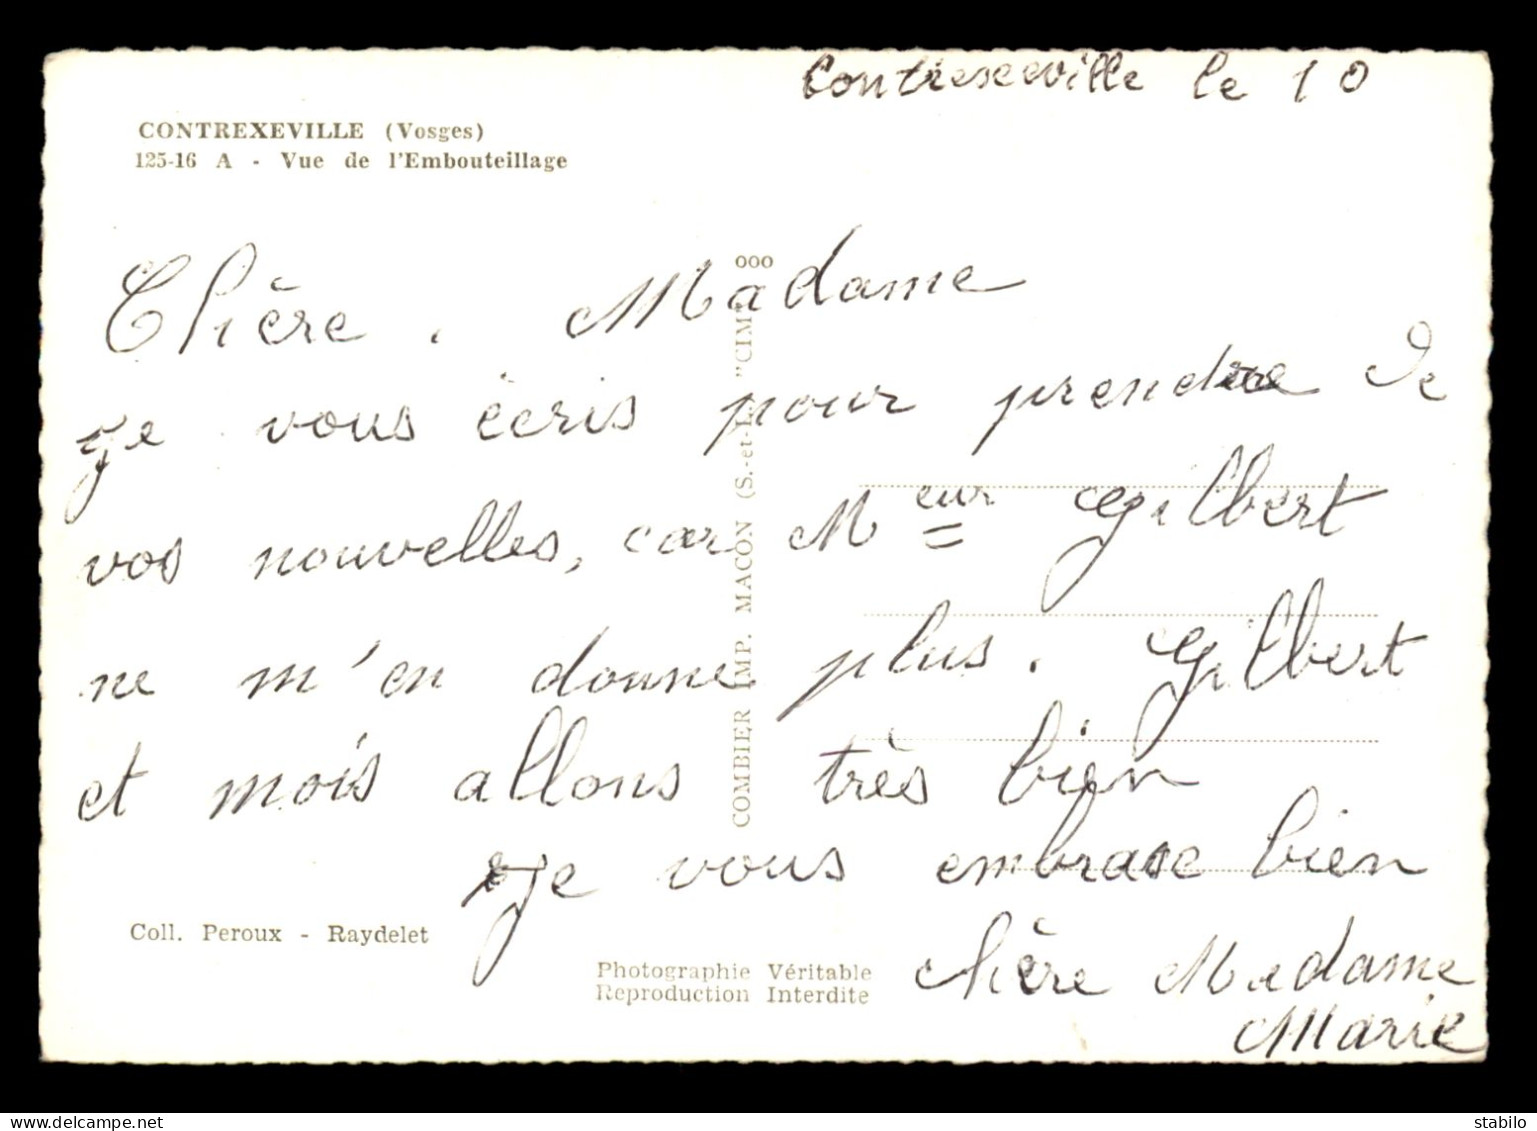 Contrexeville le 10
CONTREXEVILLE (Vosges)
125-16 A - Vue de l'Embouteillage
Chière. Madame
Je vous écris pour prendre de
vos nouvelles, car Meur Gilbert
ne m'en donne plus. Gilbert
et mois allons très bien
Je vous embrase bien
chière Madame
Marie
ooo
COMBIER IMP. MACON (S.-et-L. "CIM"
Coll. Peroux - Raydelet
Photographie Véritable
Reproduction Interdite
stabilo